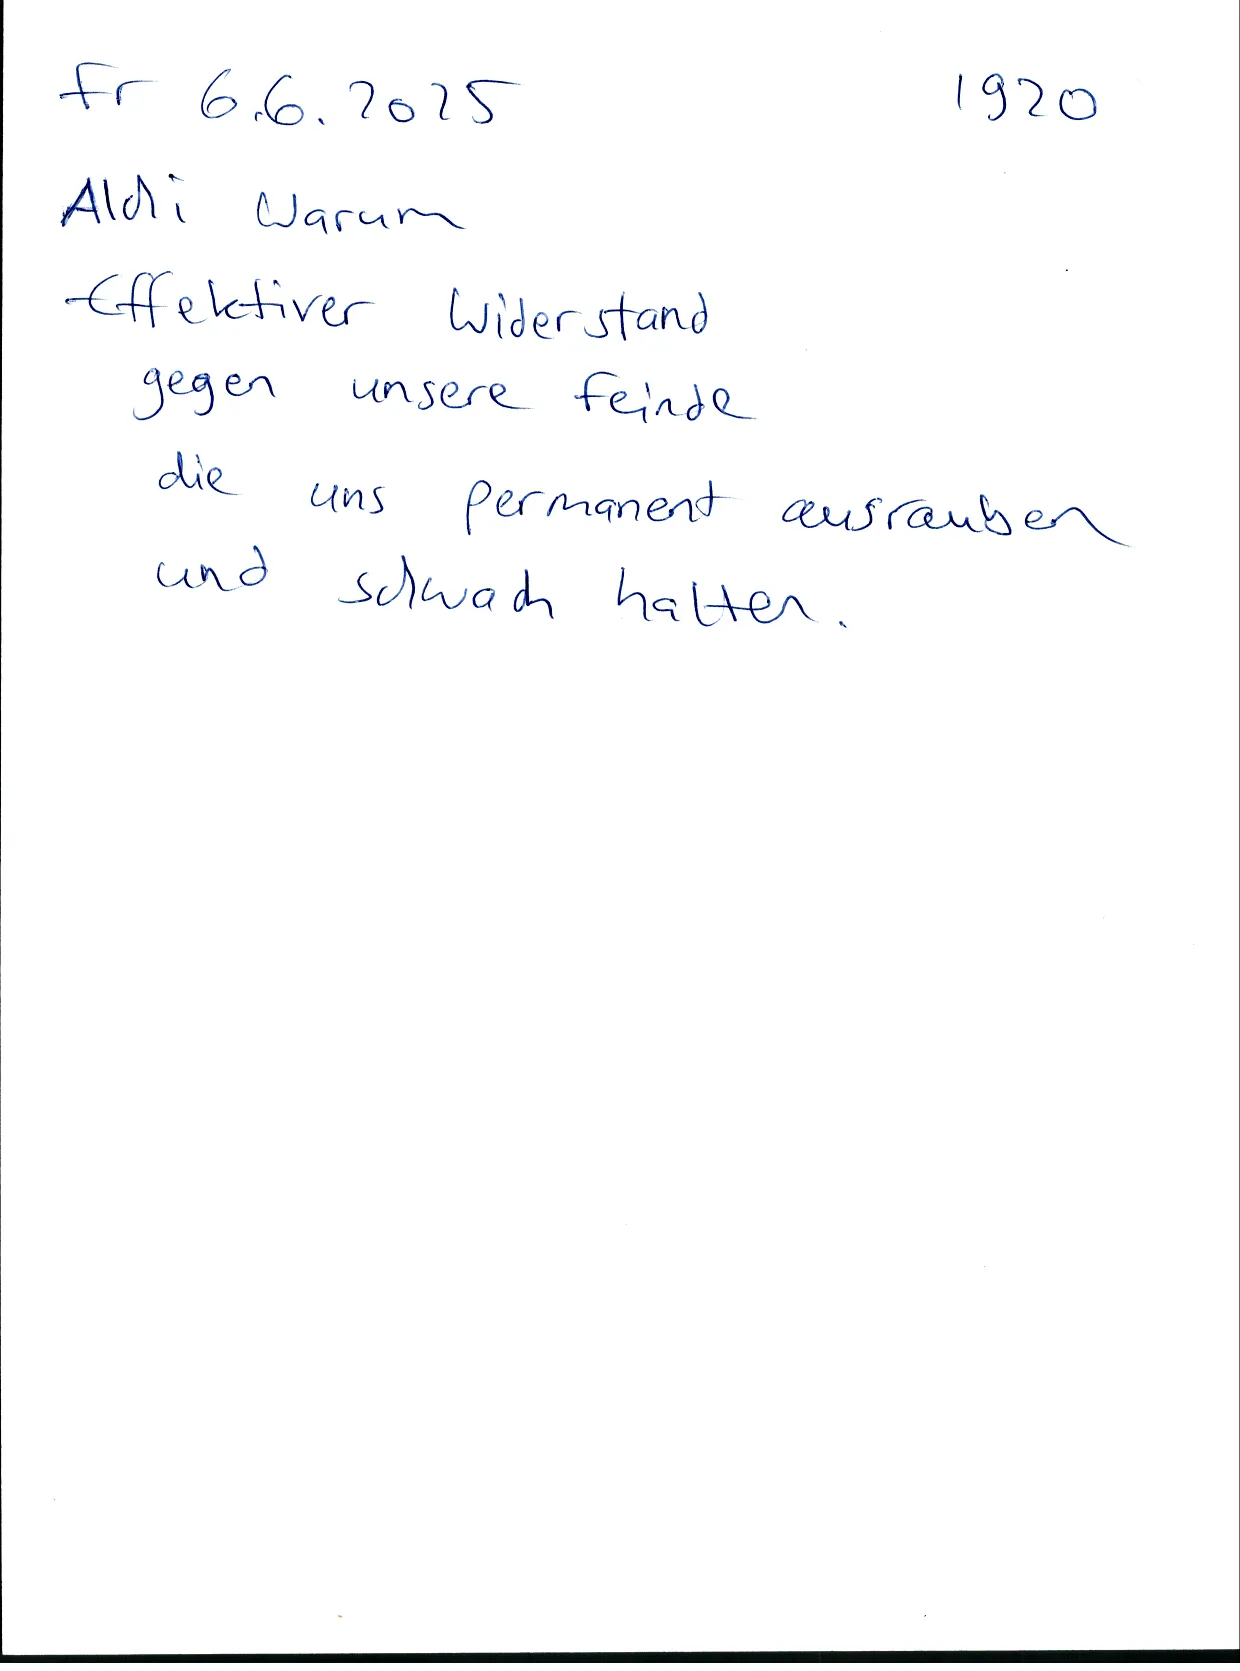 Fr 6.6.2025 1920
Aldi Warum
Effektiver Widerstand
gegen unsere Feinde
die uns permanent ausrauben
und schwach halten.